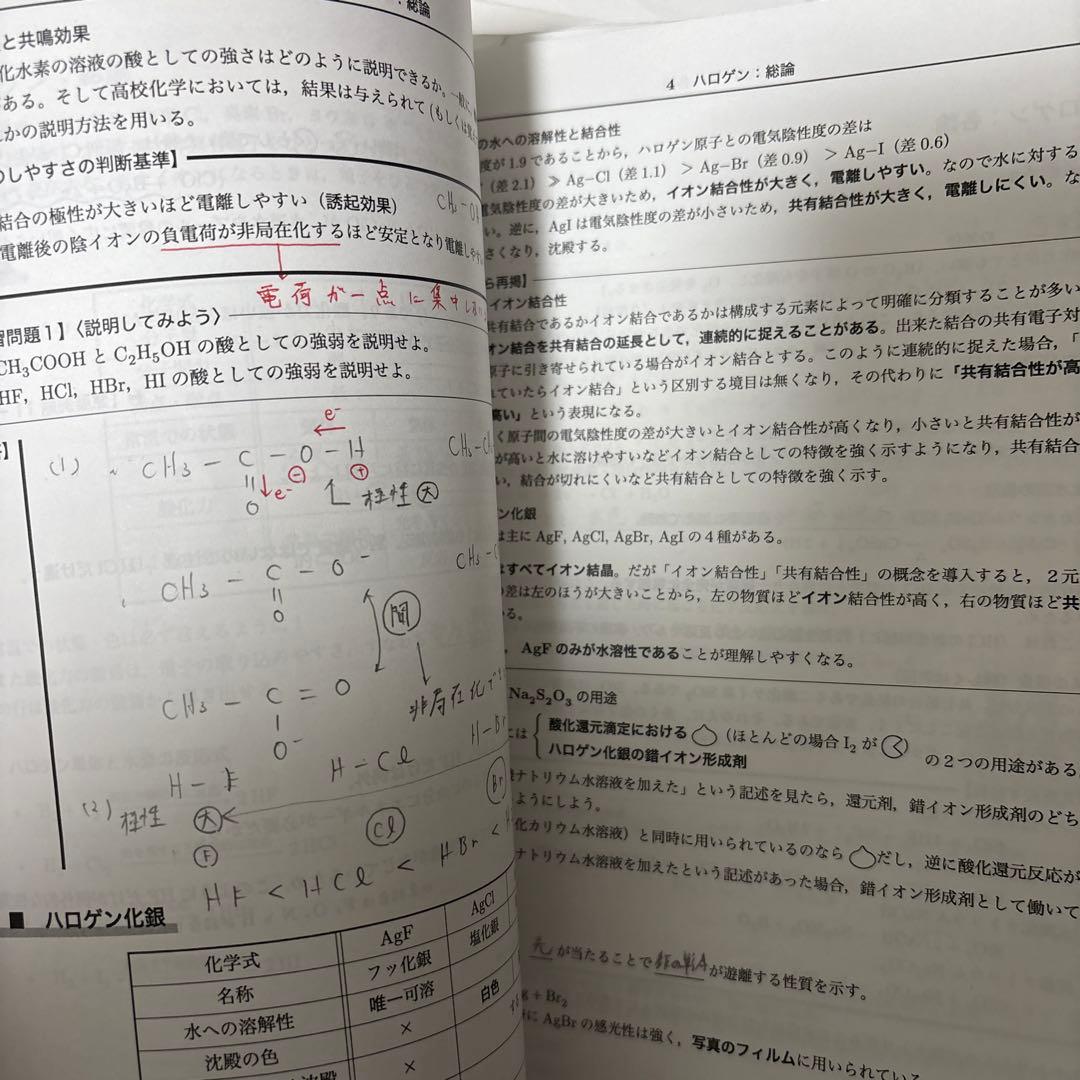 ：総論
と共鳴効果
化水素の溶液の酸としての強さはどのように説明できるか。一般に，
がある。そして高校化学においては，結果は与えられて（もしくは
かの説明方法を用いる。
のしやすさの判断基準】
結合の極性が大きいほど電離しやすい（誘起効果）
CH₃-OH
電離後の陰イオンの負電荷が非局在化するほど安定となり電離しやす
電荷が一点に集中し
習問題1】〈説明してみよう〉
CH₃COOH と C₂H₅OH の酸としての強弱を説明せよ。
HF, HCl, HBr, HI の酸としての強弱を説明せよ。
(1) CH₃ - C - O - H
e⁻
⊖ ⊕
e⁻
O
極性 大
CH₃ - C - O⁻
O
間
非局在化で
CH₃ - C = O
O⁻
(2) H - F H - Cl H - Br
極性 大
F Cl Br
HF < HCl < HBr <
■ ハロゲン化銀
化学式 AgF AgCl
名称 フッ化銀 塩化銀
水への溶解性 唯一可溶
沈殿の色 × 白色
×
4 ハロゲン：総論
の水への溶解性と結合性
度が1.9であることから，ハロゲン原子との電気陰性度の差は
（差 2.1）≫ Ag−Cl（差 1.1）> Ag−Br（差 0.9）> Ag−I（差 0.6）
電気陰性度の差が大きいため，イオン結合性が大きく，電離しやすい。なので水に対する
い。逆に，AgI は電気陰性度の差が小さいため，共有結合性が大きく，電離しにくい。な
さくなり，沈殿する。
ら再掲】
イオン結合性
共有結合であるかイオン結合であるかは構成する元素によって明確に分類することが多い
オン結合を共有結合の延長として，連続的に捉えることがある。出来た結合の共有電子対
原子に引き寄せられている場合がイオン結合とする。このように連続的に捉えた場合，「
れていたらイオン結合」という区別する境目は無くなり，その代わりに「共有結合性が高
高い」という表現になる。
く原子間の電気陰性度の差が大きいとイオン結合性が高くなり，小さいと共有結合性が
が高いと水に溶けやすいなどイオン結合としての特徴を強く示すようになり，共有結合
い，結合が切れにくいなど共有結合としての特徴を強く示す。
ン化銀
は主に AgF, AgCl, AgBr, AgI の4種がある。
はすべてイオン結晶。だが「イオン結合性」「共有結合性」の概念を導入すると，2元
の差は左のほうが大きいことから，左の物質ほどイオン結合性が高く，右の物質ほど共
る。
，AgF のみが水溶性であることが理解しやすくなる。
Na₂S₂O₃ の用途
には { 酸化還元滴定における（ほとんどの場合 I₂ が
ハロゲン化銀の錯イオン形成剤
の2つの用途がある
ナトリウム水溶液を加えた」という記述を見たら，還元剤，錯イオン形成剤のどち
ようにしよう。
化カリウム水溶液）と同時に用いられているのならだし，逆に酸化還元反応が
ナトリウム水溶液を加えたという記述があった場合，錯イオン形成剤として働いて
光が当たることでが遊離する性質を示す。
g + Br₂
に AgBr の感光性は強く，写真のフィルムに用いられている